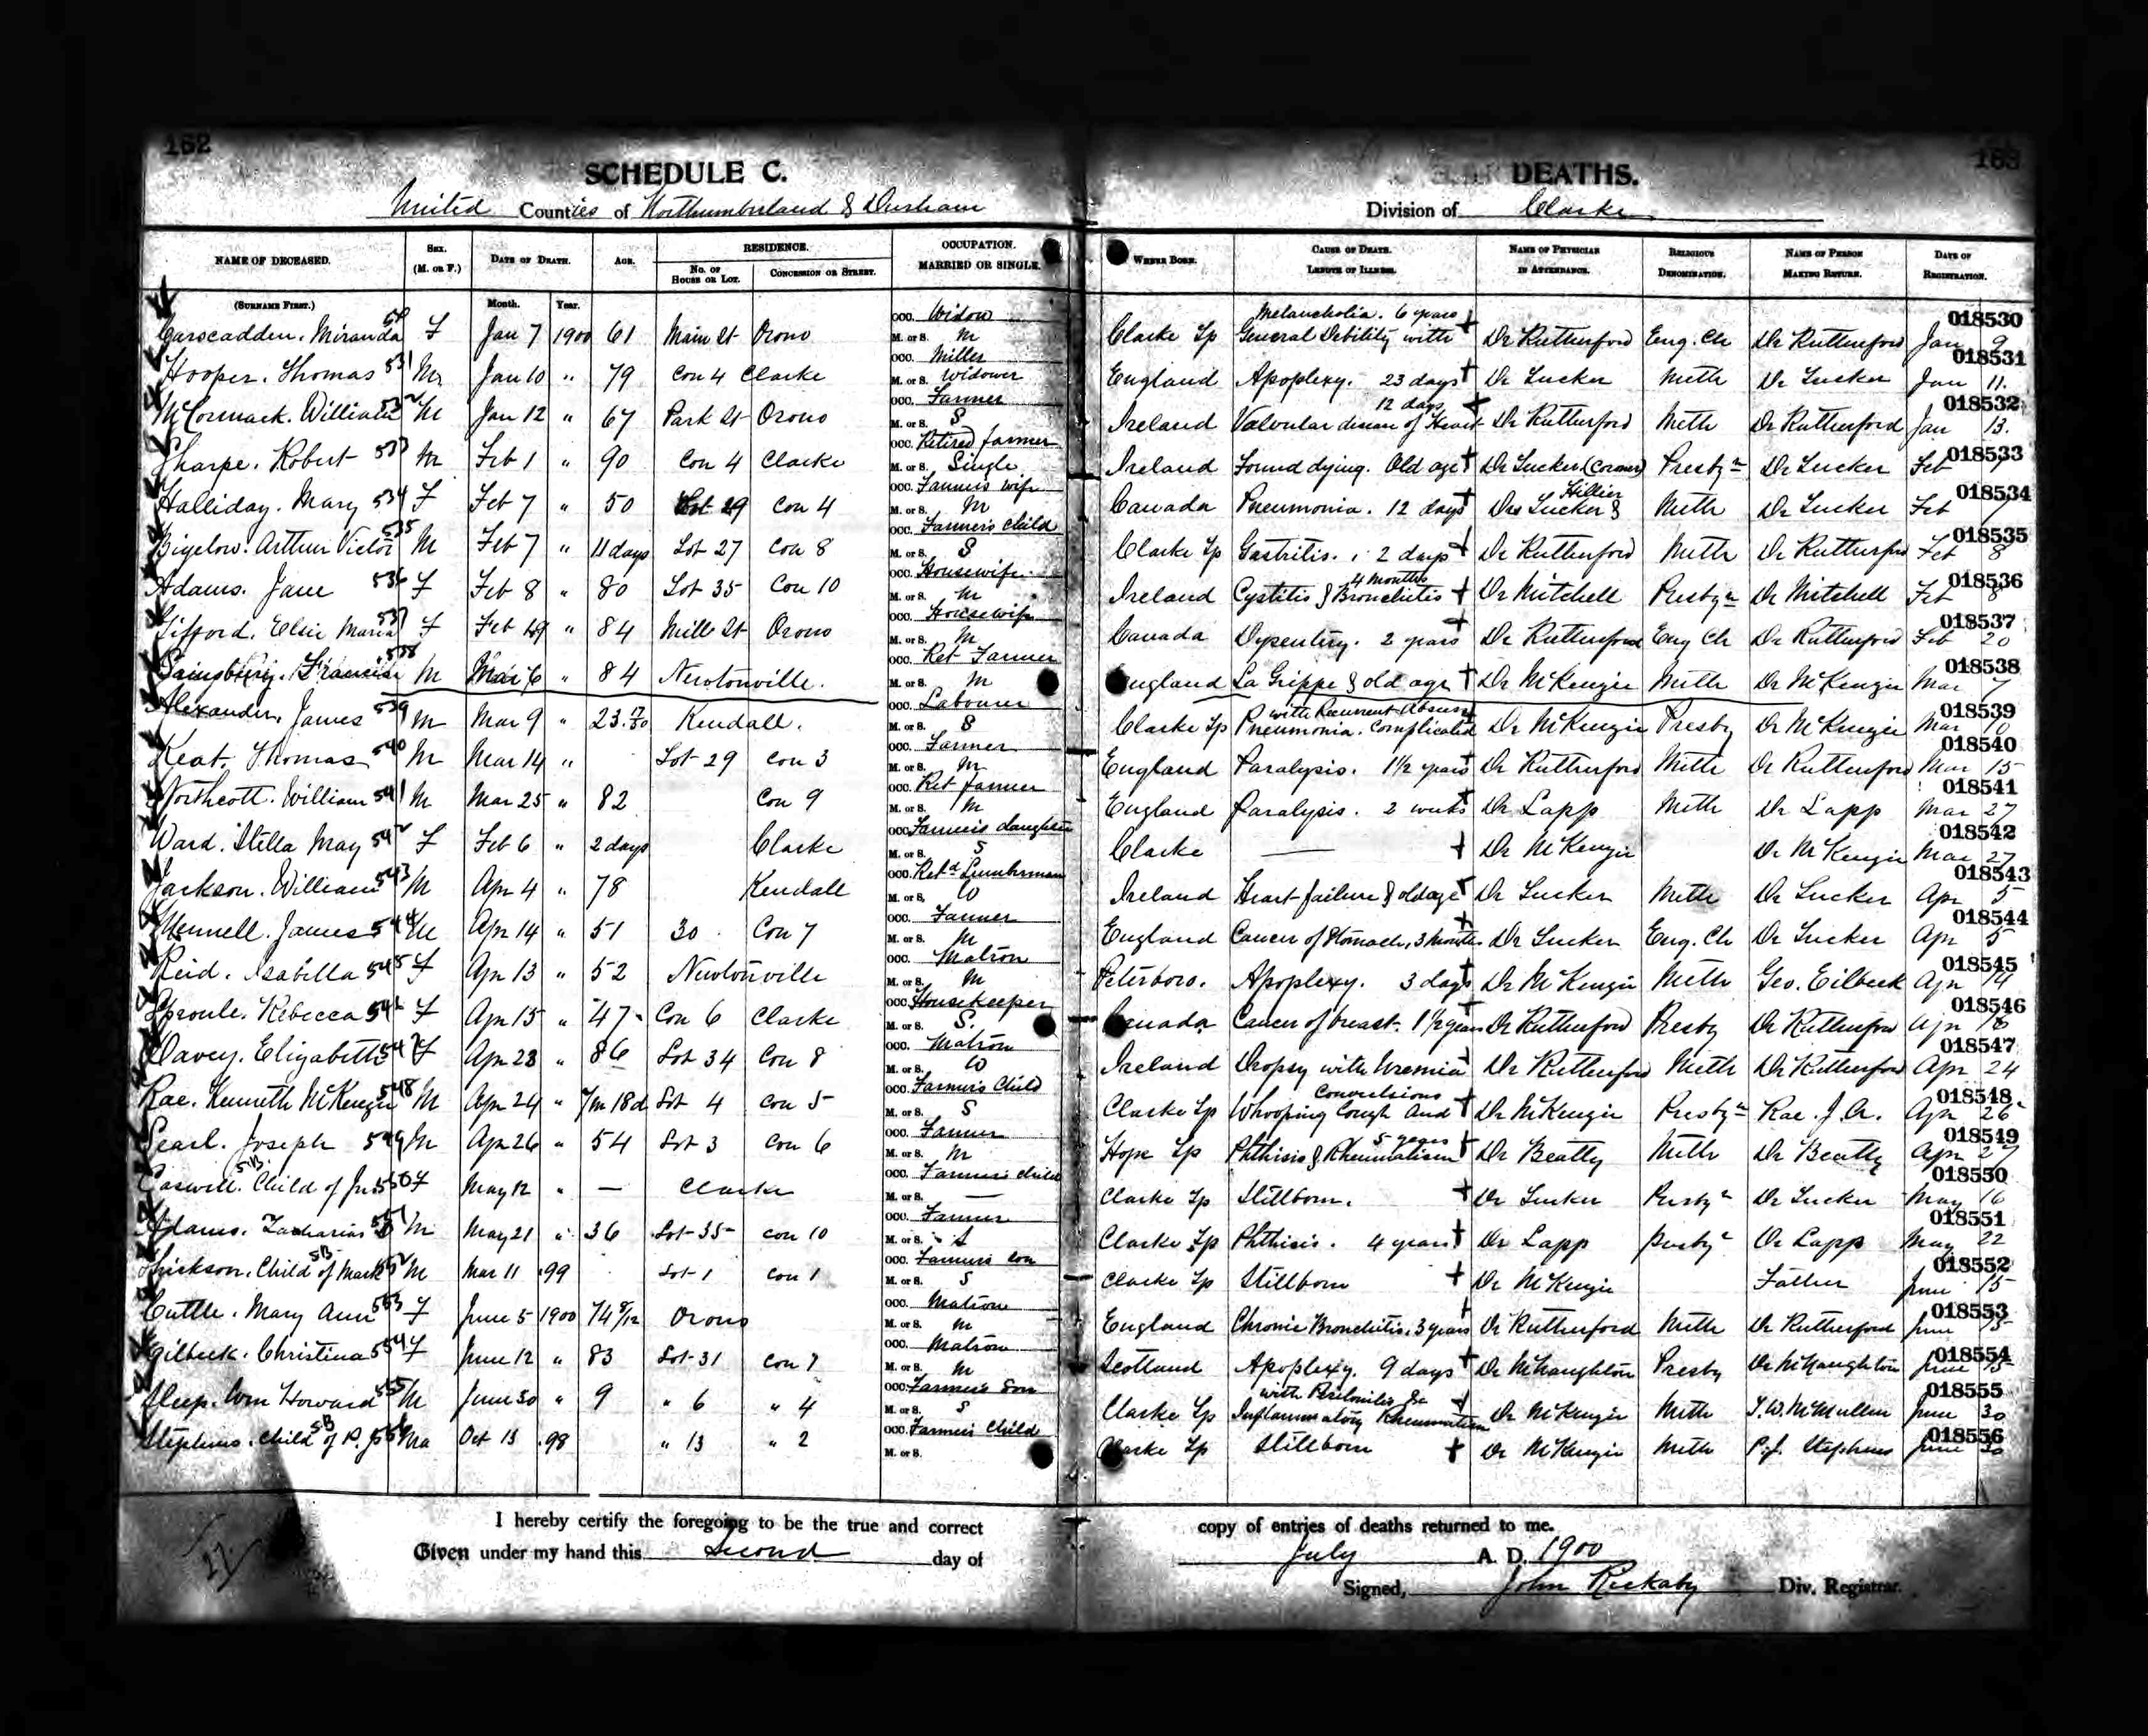 162
163
SCHEDULE C.
DEATHS.
United Counties of Northumberland & Durham
Division of Clarke
NAME OF DECEASED. (SURNAME FIRST.) SEX. (M. OR F.) DATE OF DEATH. Month. Year. AGE. RESIDENCE. No. OF HOUSE OR LOT. CONCESSION OR STREET. OCCUPATION. MARRIED OR SINGLE. WHERE BORN. CAUSE OF DEATH. LENGTH OF ILLNESS. NAME OF PHYSICIAN IN ATTENDANCE. RELIGIOUS DENOMINATION. NAME OF PERSON MAKING RETURN. DATE OF REGISTRATION.
Carscadden. Miranda F Jan 7 1900 61 Main St Orono OCC. Widow M. or S. M Clarke Tp Melancholia. 6 years General Debility with Dr Rutherford Eng. Ch Dr Rutherford Jan 9 018530
Hooper. Thomas 531 M Jan 10 " 79 Con 4 Clarke OCC. Miller M. or S. Widower England Apoplexy. 23 days Dr Tucker Meth Dr Tucker Jan 11. 018531
McCormack. William 532 M Jan 12 " 67 Park St Orono OCC. Farmer M. or S. S Ireland 12 days Valvular disease of Heart Dr Rutherford Meth Dr Rutherford Jan 13. 018532
Sharpe. Robert 533 M Feb 1 " 90 Con 4 Clarke OCC. Retired farmer M. or S. Single Ireland Found dying. Old age Dr Tucker (Coroner) Presbyn Dr Tucker Feb 018533
Halliday. Mary 534 F Feb 7 " 50 Lot 29 Con 4 OCC. Farmers wife M. or S. M Canada Pneumonia. 12 days Drs Tucker & Hillier Meth Dr Tucker Feb 7 018534
Bigelow. Arthur Victor 535 M Feb 7 " 11 days Lot 27 Con 8 OCC. Farmer's Child M. or S. S Clarke Tp Gastritis. 2 days Dr Rutherford Meth Dr Rutherford Feb 8 018535
Adams. Jane 536 F Feb 8 " 80 Lot 35 Con 10 OCC. Housewife. M. or S. M Ireland 4 months Cystitis & Bronchitis Dr Mitchell Presbyn Dr Mitchell Feb 8 018536
Gifford. Elsie Maria 537 F Feb 19 " 84 Mill St Orono OCC. Housewife M. or S. M Canada Dysentery. 2 years Dr Rutherford Eng Ch Dr Rutherford Feb 20 018537
Sainsbury. Francis 538 M Mar 6 " 84 Newtonville. OCC. Ret Farmer M. or S. M England La Grippe & old age Dr McKenzie Meth Dr McKenzie Mar 7 018538
Alexander. James 539 M Mar 9 " 23. Kendall. OCC. Labourer M. or S. S Clarke Tp with Recurrent Abscess Pneumonia. Complicated Dr McKenzie Presby Dr McKenzie Mar 10 018539
Keat. Thomas 540 M Mar 14 " Lot 29 Con 3 OCC. Farmer M. or S. M England Paralysis. 1½ years Dr Rutherford Meth Dr Rutherford Mar 15 018540
Northcott. William 541 M Mar 25 " 82 Con 9 OCC. Ret farmer M. or S. M England Paralysis. 2 weeks Dr Lapp Meth Dr Lapp Mar 27 018541
Ward. Stella May 542 F Feb 6 " 2 days Clarke OCC. Farmer's daughter M. or S. S Clarke — Dr McKenzie Dr McKenzie Mar 27 018542
Jackson. William 543 M Apr 4 " 78 Kendall OCC. Retd Lumberman M. or S. W Ireland Heart failure & old age Dr Tucker Meth Dr Tucker Apr 5 018543
Mennell. James 544 M Apr 14 " 51 30 Con 7 OCC. Farmer M. or S. M England Cancer of Stomach, 3 months Dr Tucker Eng. Ch Dr Tucker Apr 5 018544
Reid. Isabella 545 F Apr 13 " 52 Newtonville OCC. Matron M. or S. M Peterboro. Apoplexy. 3 days Dr McKenzie Meth Geo. Eilbeck Apr 14 018545
Sproule. Rebecca 546 F Apr 15 " 47 Con 6 Clarke OCC. Housekeeper M. or S. S. Canada Cancer of breast. 1½ years Dr Rutherford Presby Dr Rutherford Apr 16 018546
Davey. Elizabeth 547 F Apr 23 " 86 Lot 34 Con 8 OCC. Matron M. or S. W Ireland Dropsy with Uremia Dr Rutherford Meth Dr Rutherford Apr 24 018547
Rae. Kenneth McKenzie 548 M Apr 24 " 7m 18d Lot 4 Con 5 OCC. Farmer's Child M. or S. S Clarke Tp Convulsions Whooping Cough and Dr McKenzie Presbyn Rae. J. A. Apr 26 018548
Pearl. Joseph 549 M Apr 26 " 54 Lot 3 Con 6 OCC. Farmer M. or S. M Hope Tp 5 years Phthisis & Rheumatism Dr Beatty Meth Dr Beatty Apr 27 018549
Caswell. Child of Jn SB 550 F May 12 " — Clarke OCC. Farmer's child M. or S. — Clarke Tp Stillborn. Dr Tucker Presbyn Dr Tucker May 16 018550
Adams. Zacharias 551 M May 21 " 36 Lot 35 Con 10 OCC. Farmer M. or S. S Clarke Tp Phthisis. 4 years Dr Lapp Presbyn Dr Lapp May 22 018551
Thickson. Child of Mark SB 552 M Mar 11 .99 Lot 1 Con 1 OCC. Farmers son M. or S. S Clarke Tp Stillborn Dr McKenzie Father June 15 018552
Cuttle. Mary Ann 553 F June 5 1900 74 8/12 Orono OCC. Matron M. or S. M England Chronic Bronchitis. 3 years Dr Rutherford Meth Dr Rutherford June 15 018553
Gilbeck. Christina 554 F June 12 " 83 Lot 31 Con 7 OCC. Matron M. or S. M Scotland Apoplexy. 9 days Dr McNaughton Presby Dr McNaughton June 15 018554
Sleep. Wm Howard 555 M June 30 " 9 " 6 " 4 OCC. Farmer's Son M. or S. S Clarke Tp with Peritonitis &c Inflammatory Rheumatism Dr McKenzie Meth T. W. McMullen June 30 018555
Stephens. Child of P. J. SB 556 Ma Oct 13 .98 " 13 " 2 OCC. Farmer's Child M. or S. Clarke Tp Stillborn Dr McKenzie Meth P. J. Stephens June 30 018556
I hereby certify the foregoing to be the true and correct copy of entries of deaths returned to me.
Given under my hand this Second day of July A. D. 1900
Signed, John Rickaby Div. Registrar.